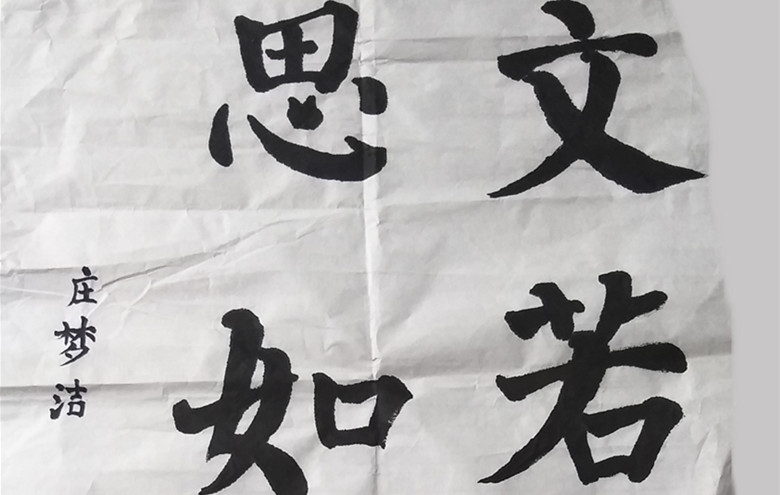 文若
思如
庄梦洁